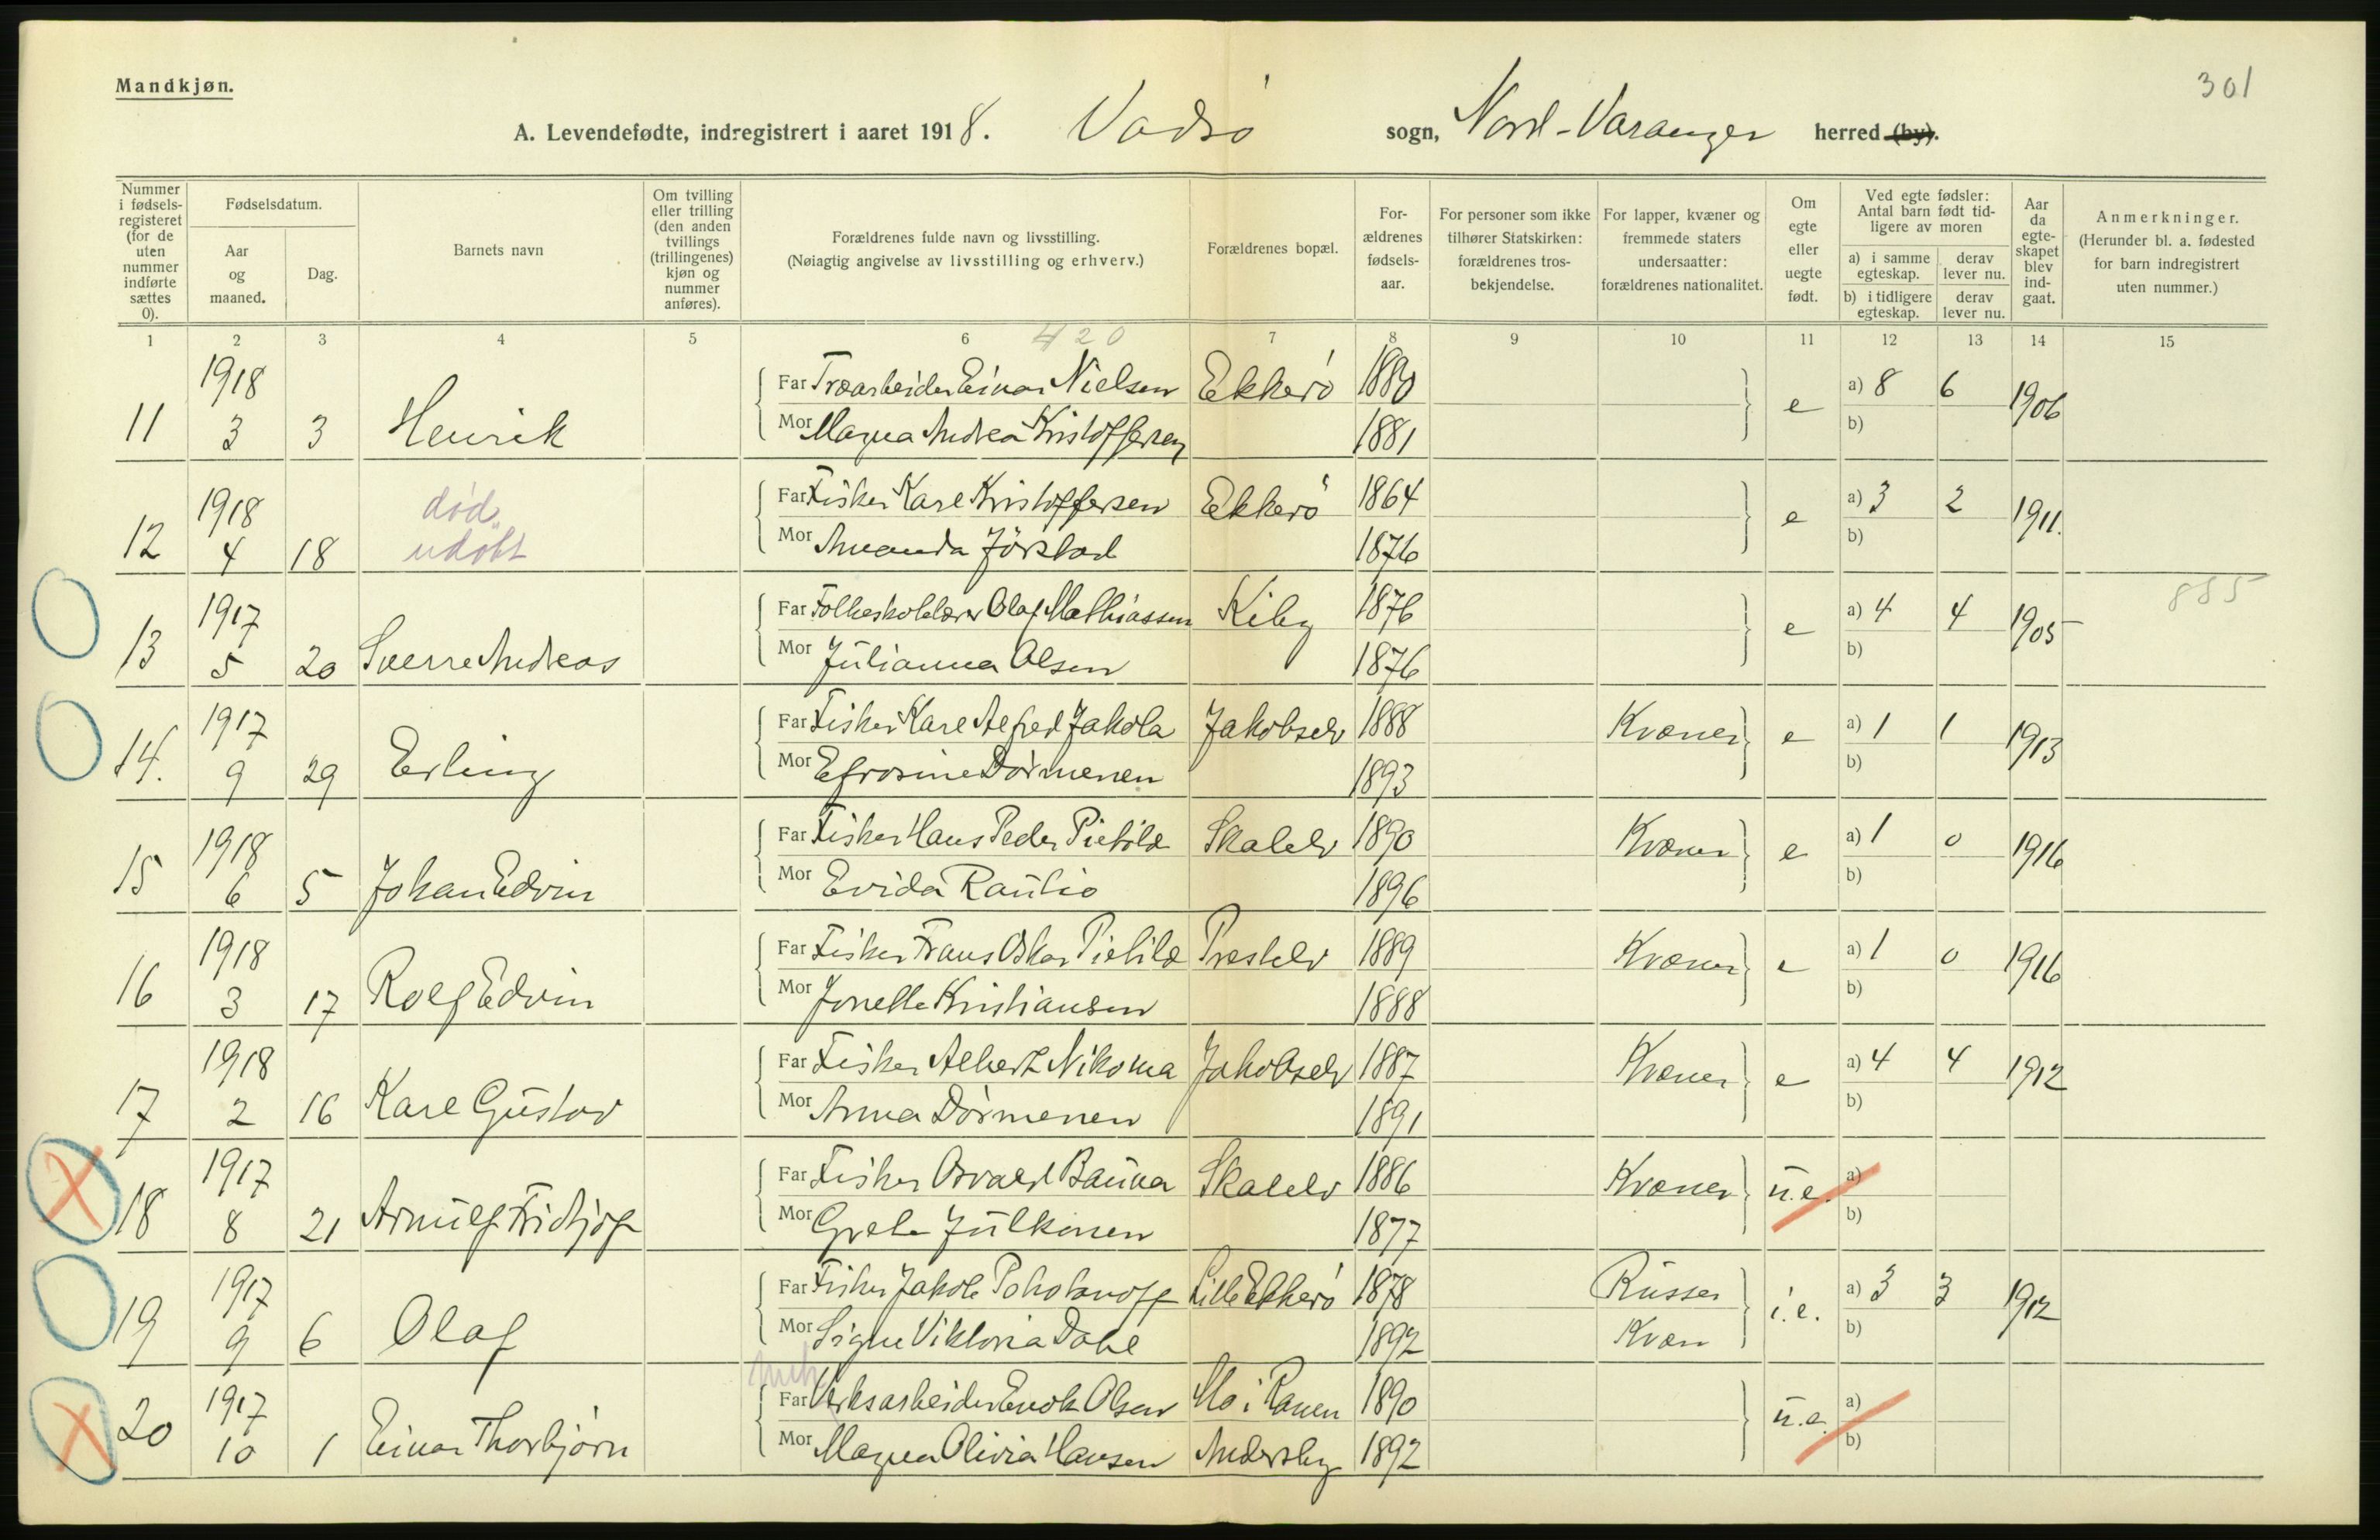 Mandkjøn.
301
A. Levendefødte, indregistrert i aaret 1918. Vadsø sogn, Nord-Varanger herred (by).
Nummer i fødselsregisteret (for de uten nummer indførte sættes 0).
Fødselsdatum.
Aar og maaned.
Dag.
Barnets navn
Om tvilling eller trilling (den anden tvillings (trillingenes) kjøn og nummer anføres).
Forældrenes fulde navn og livsstilling.
(Nøiagtig angivelse av livsstilling og erhverv.)
Forældrenes bopæl.
Forældrenes fødselsaar.
For personer som ikke tilhører Statskirken: forældrenes trosbekjendelse.
For lapper, kvæner og fremmede staters undersaatter: forældrenes nationalitet.
Om egte eller uegte født.
Ved egte fødsler: Antal barn født tidligere av moren
a) i samme egteskap. derav lever nu.
b) i tidligere egteskap. derav lever nu.
Aar da egteskapet blev indgaat.
Anmerkninger.
(Herunder bl. a. fødested for barn indregistrert uten nummer.)
1 2 3 4 5 6 420 7 8 9 10 11 12 13 14 15
1918 Far Træarbeider Einar Nielsen Ekkerö 1880 a) 8 6
11 3 3 Henrik Mor Magna Andrea Kristoffersen 1881 e b) 1906
1918 død Far Fisker Karl Kristoffersen Ekkerö 1864 a) 3 2
12 4 18 udøbt Mor Amanda Jörstad 1876 e b) 1911.
1917 Far Folkeskolelærer Olaf Mathiassen Kiby 1876 a) 4 4 885
13 5 20 Sverre Andreas Mor Julianna Olsen 1876 e b) 1905
1917 Far Fisker Karl Alfred Jakola Jakobselv 1888 Kvæner a) 1 1
14. 9 29 Erling Mor Efrosine Dörmenen 1893 e b) 1913
1918 Far Fisker Hans Peder Pietilæ Skalelv 1890 Kvæner a) 1 0
15 6 5 Johan Edvin Mor Evida Rautio 1896 e b) 1916
1918 Far Fisker Frans Oskar Pietilæ Prestelv 1889 Kvæner a) 1 0
16 3 17 Rolf Edvin Mor Jonette Kristiansen 1888 e b) 1916
1918 Far Fisker Albert Nikoma Jakobselv 1887 Kvæner a) 4 4
17 2 16 Karl Gustav Mor Anna Dörmenen 1891 e b) 1912
1917 Far Fisker Osvald Bauna Skalelv 1886 Kvæner u.e. a)
18 8 21 Arnulf Fridtjof Mor Grete Julkunen 1877 b)
1917 Far Fisker Jakob Lille Ekkerö 1878 Russer a) 3 3
19 9 6 Olaf Mor Signe Viktoria Dahl 1892 Kvæn i.e. b) 1912
1917 Far Verksarbeider Enok Olsen Mo i Ranen 1890 u.e. a)
20 10 1 Einar Thorbjørn Mor Magna Olivia Hansen Andersby 1892 b)